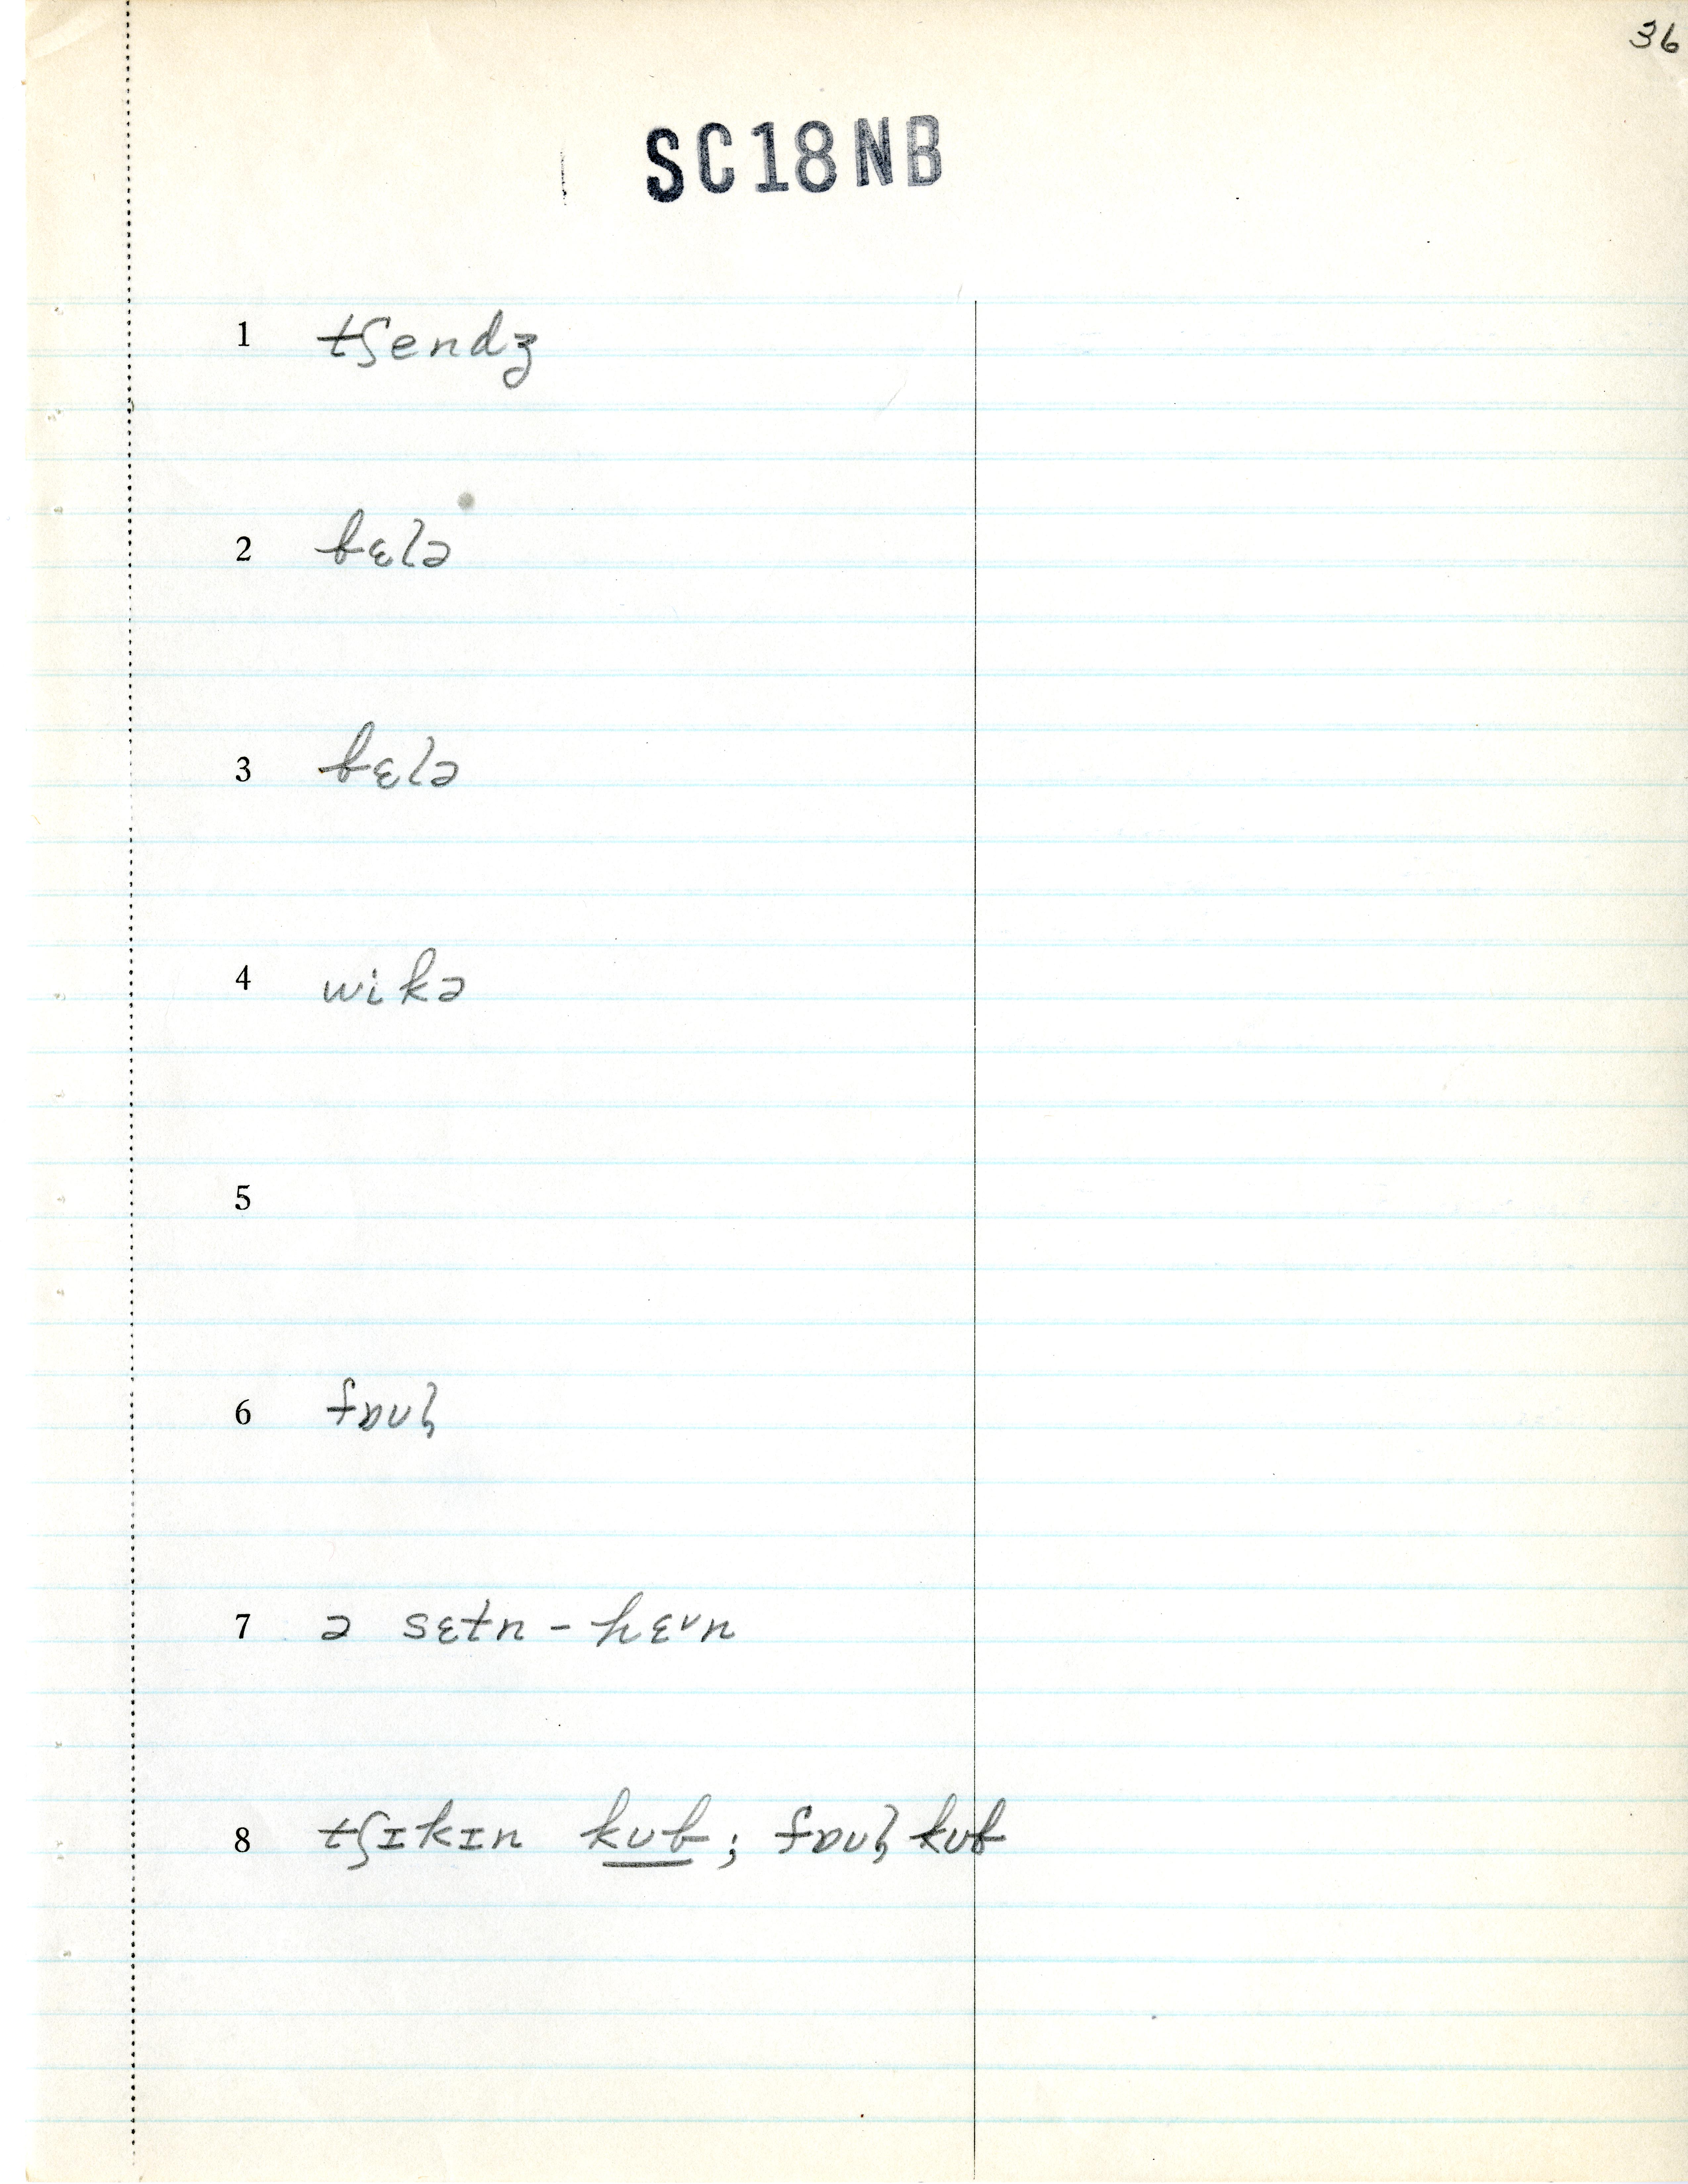 36
SC18NB
1 tʃendʒ
2 bɛlə
3 bɛlə
4 wikə
5
6 fɒuɫ
7 ə sɛtn - hɛvn
8 tʃɪkɪn kub ; fɒuɫ kub